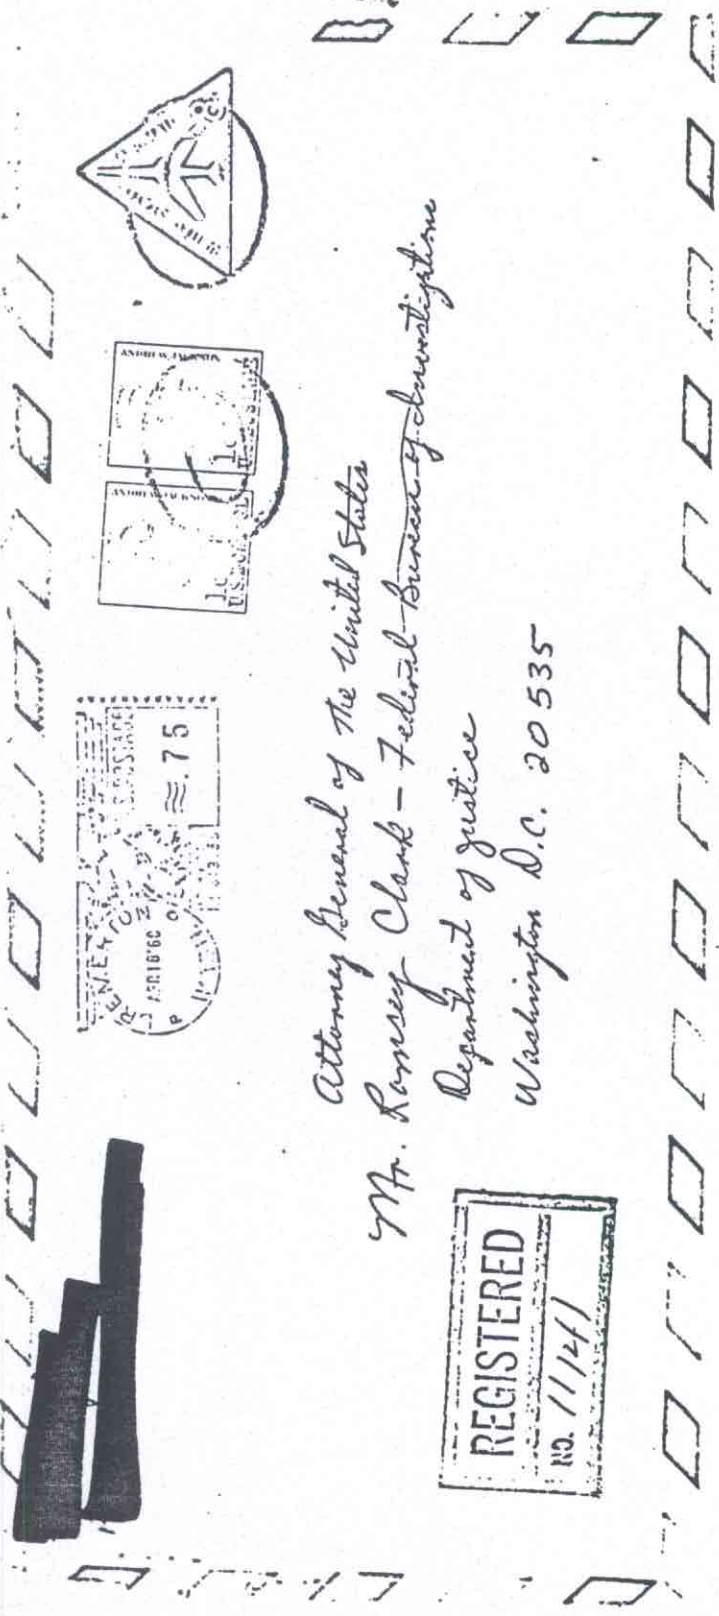 ANDREW JACKSON
1c
U.S. POSTAGE
ANDREW JACKSON
1c
U.S. POSTAGE
U.S. POSTAGE
.75
Attorney General of the United States
Mr. Ramsey Clark - Federal Bureau of Investigations
Department of Justice
Washington D.C. 20535
REGISTERED
NO. 11141